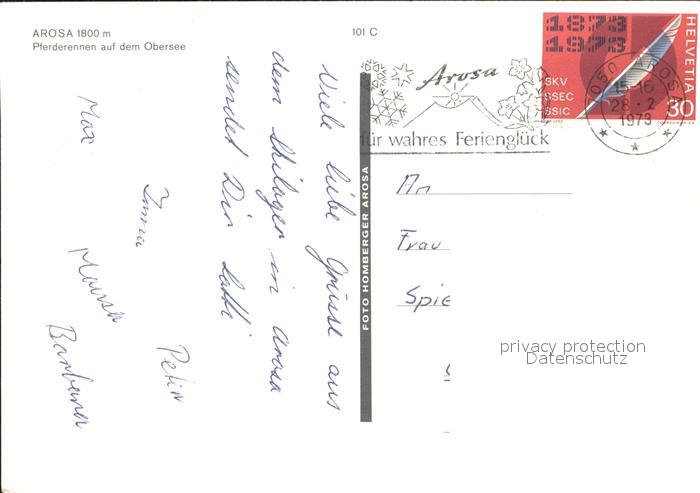 AROSA 1800 m
Pferderennen auf dem Obersee
101 C
1873
1973
SKV
SSEC
SSIC
HELVETIA
30
7050 AROSA
15-16
28.2
1973
Arosa
für wahres Ferienglück
Viele liebe Grüsse aus
dem Skilager in Arosa
sendet Dir
Max
Imma
Peter
Barbara
FOTO HOMBERGER AROSA
An
Frau
Spie
privacy protection
Datenschutz